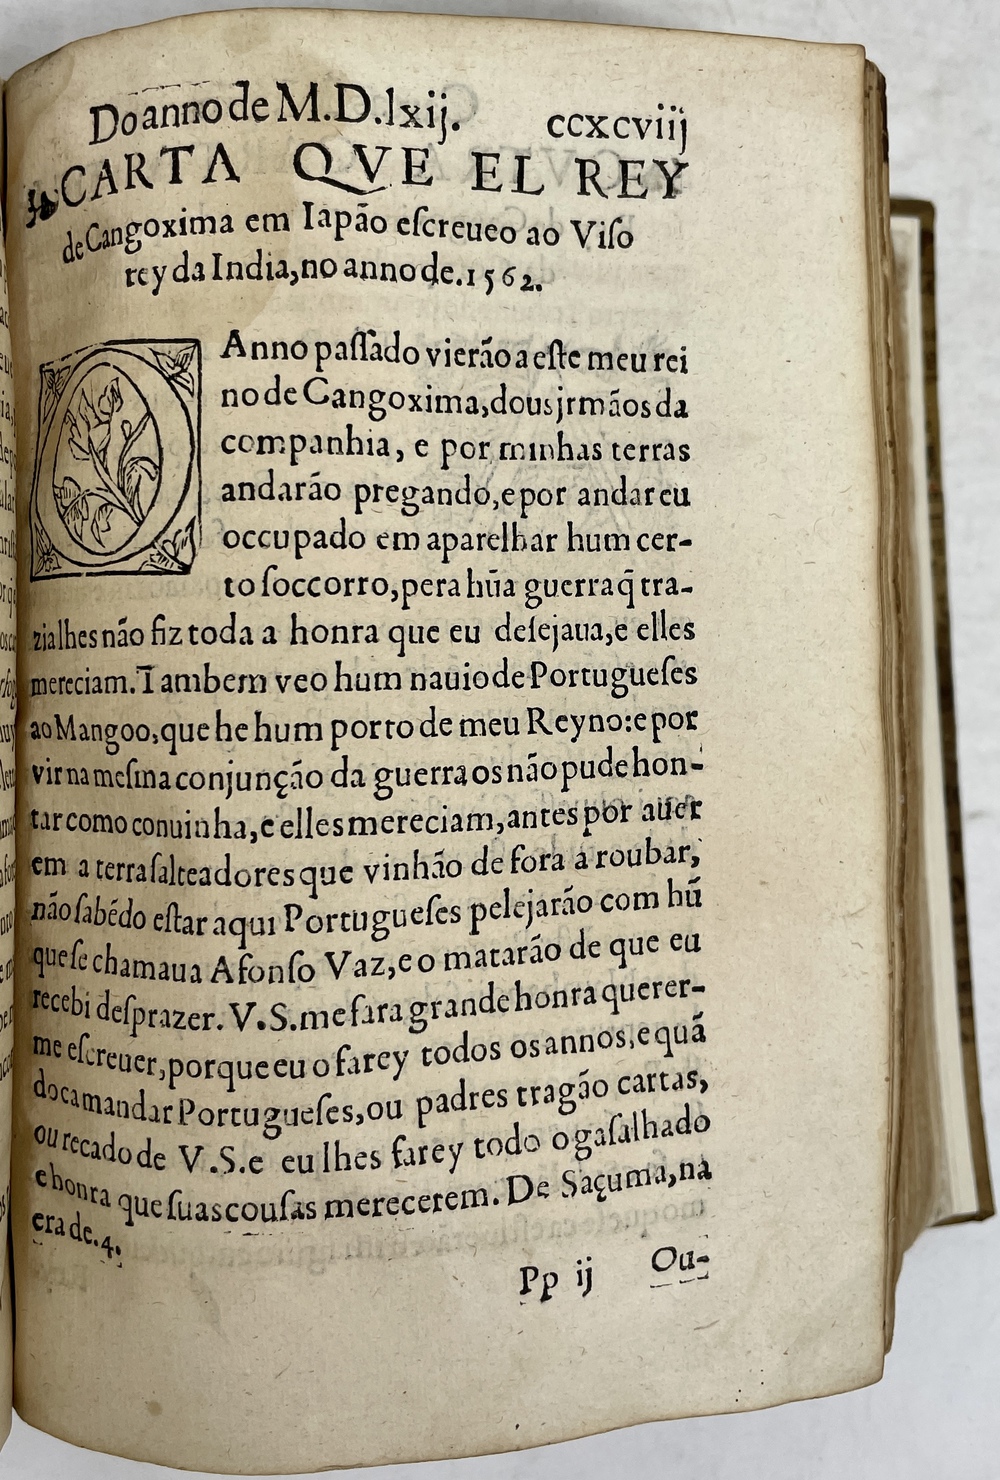 Do anno de M.D.lxij. ccxcviij
CARTA QVE EL REY
de Cangoxima em Iapão eſcreueo ao Viſo
rey da India, no anno de. 1562.
O Anno paſſado vierão a eſte meu rei
no de Cangoxima, dous jrmãos da
companhia, e por minhas terras
andarão pregando, e por andar eu
occupado em aparelhar hum cer-
to ſoccorro, pera hũa guerra q̃ tra-
zia lhes não fiz toda a honra que eu deſejaua, e elles
mereciam. Tambem veo hum nauio de Portugueſes
ao Mangoo, que he hum porto de meu Reyno: e por
vir na meſma conjunção da guerra os não pude hon-
rar como conuinha, e elles mereciam, antes por auer
em a terra ſalteadores que vinhão de fora a roubar,
não ſabẽdo eſtar aqui Portugueſes pelejarão com hũ
que ſe chamaua Afonſo Vaz, e o matarão de que eu
recebi deſprazer. V.S. me fara grande honra querer-
me eſcreuer, porque eu o farey todos os annos, e quã
do ca mandar Portugueſes, ou padres tragão cartas,
ou recado de V.S. e eu lhes farey todo o gaſalhado
e honra que ſuas couſas merecerem. De Saçuma, na
era de. 4.
Pp ij Ou-